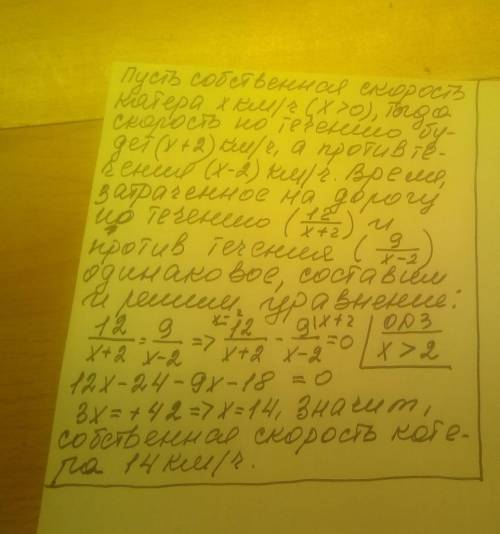 Пусть собственная скорость
катера x км/ч (x>0), тогда
скорость по течению бу-
дет (x+2) км/ч, а против те-
чения (x-2) км/ч. Время,
затраченное на дорогу
по течению (12/(x+2)) и
против течения (9/(x-2))
одинаковое, составим
и решим уравнение:
12/(x+2) = 9/(x-2) => 12/(x+2) - 9/(x-2) \x+2 = 0 ОДЗ x>2
12x-24-9x-18 = 0
3x=+42=>x=14, значит,
собственная скорость кате-
ра 14 км/ч.